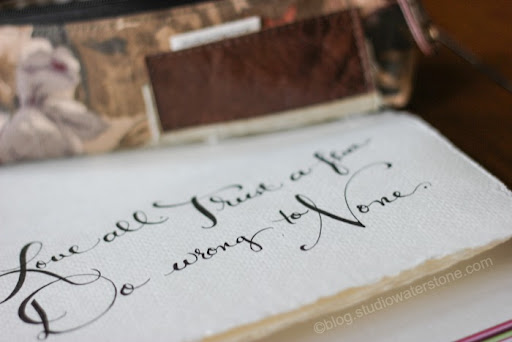 Love all. Trust a few
Do wrong to None.
©blog.studiowaterstone.com